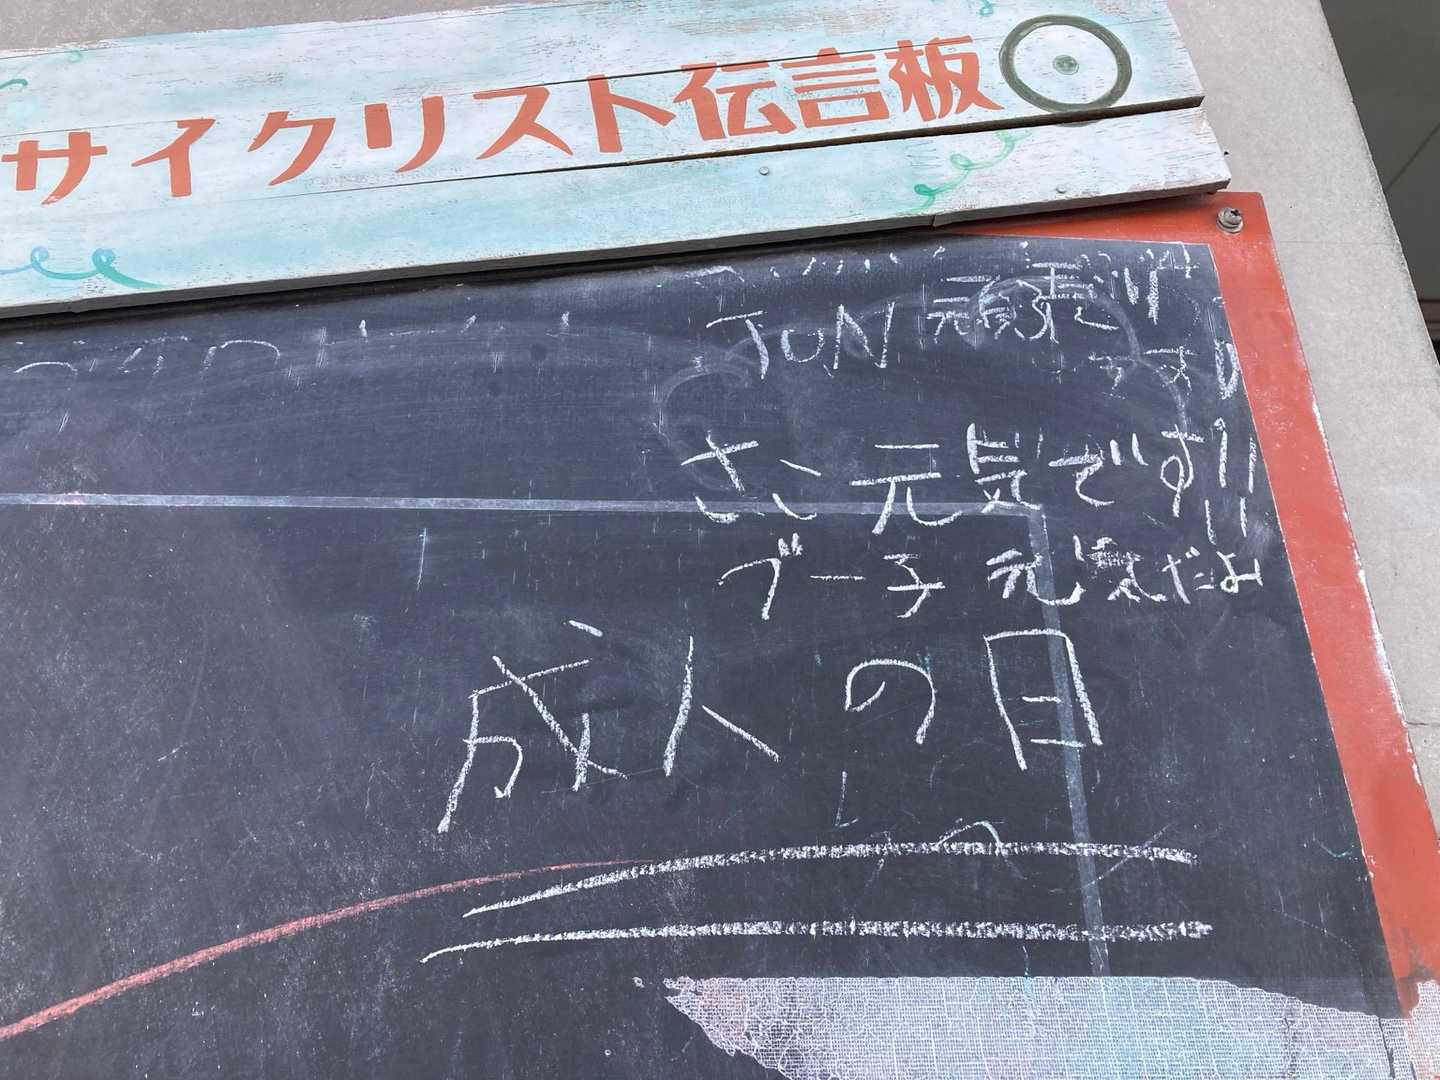 サイクリスト伝言板
JUN
さこ 元気です!!
ブー子 元気だよ
成人の日